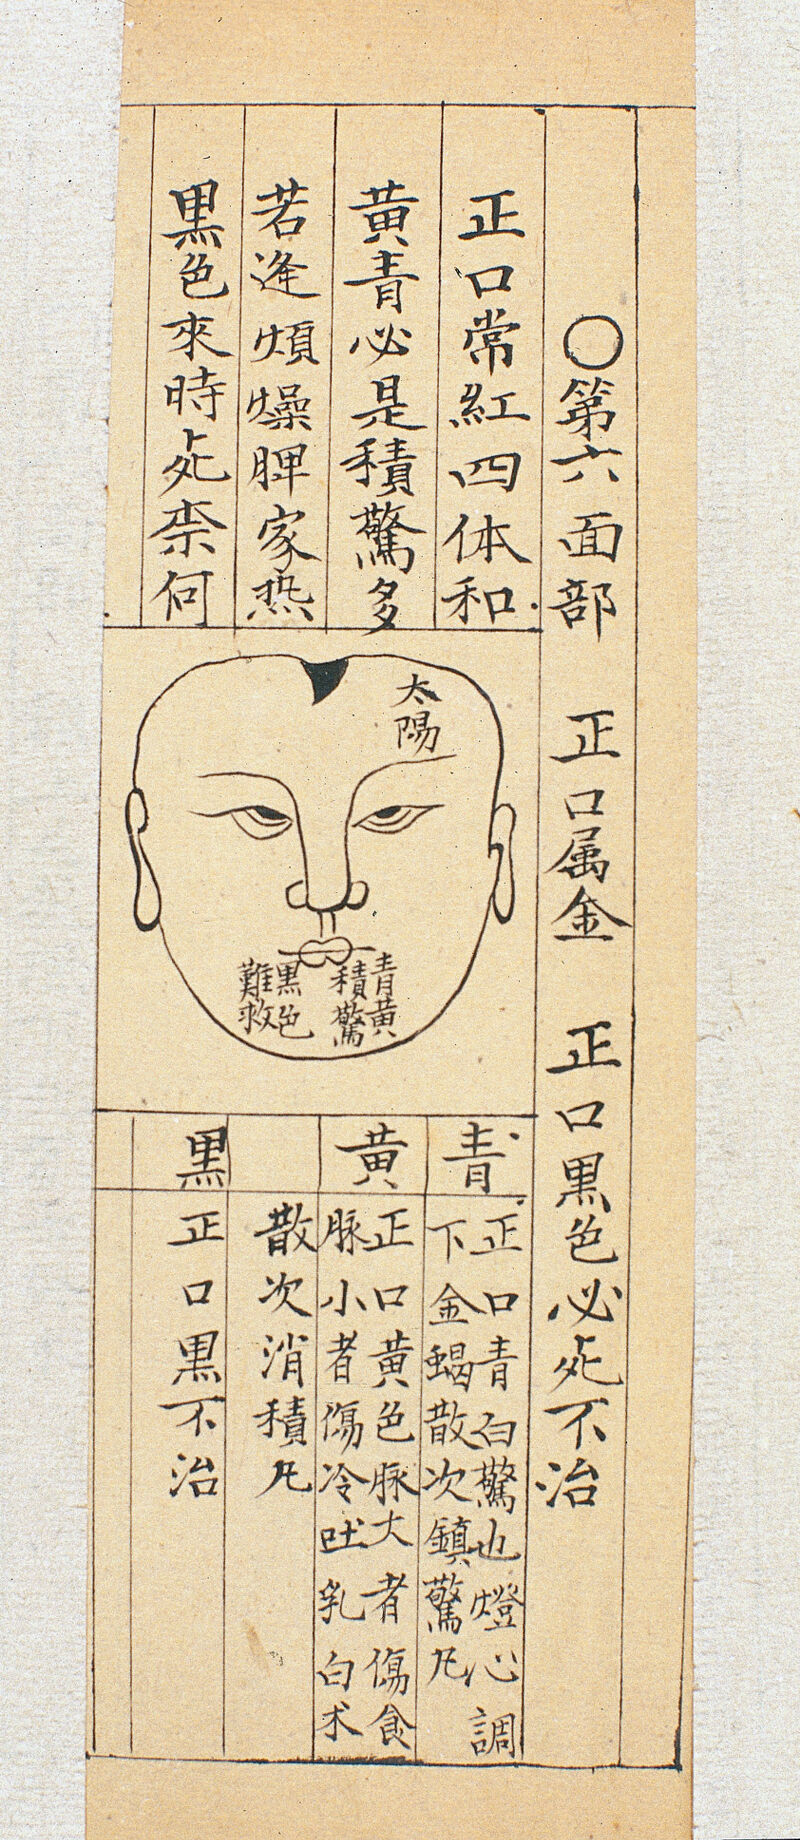 ○第六面部　正口属金　正口黒色必死不治
正口常紅四体和
黄青必是積驚多
若逢煩燥脾家热
黒色來時死柰何
太陽
青黄
積驚
黒色
難救
青
正口青白驚也燈心調
下金蝎散次鎮驚凡
黄
正口黄色脉大者傷食
脉小者傷冷吐乳白术
散次消積凡
黒
正口黒不治